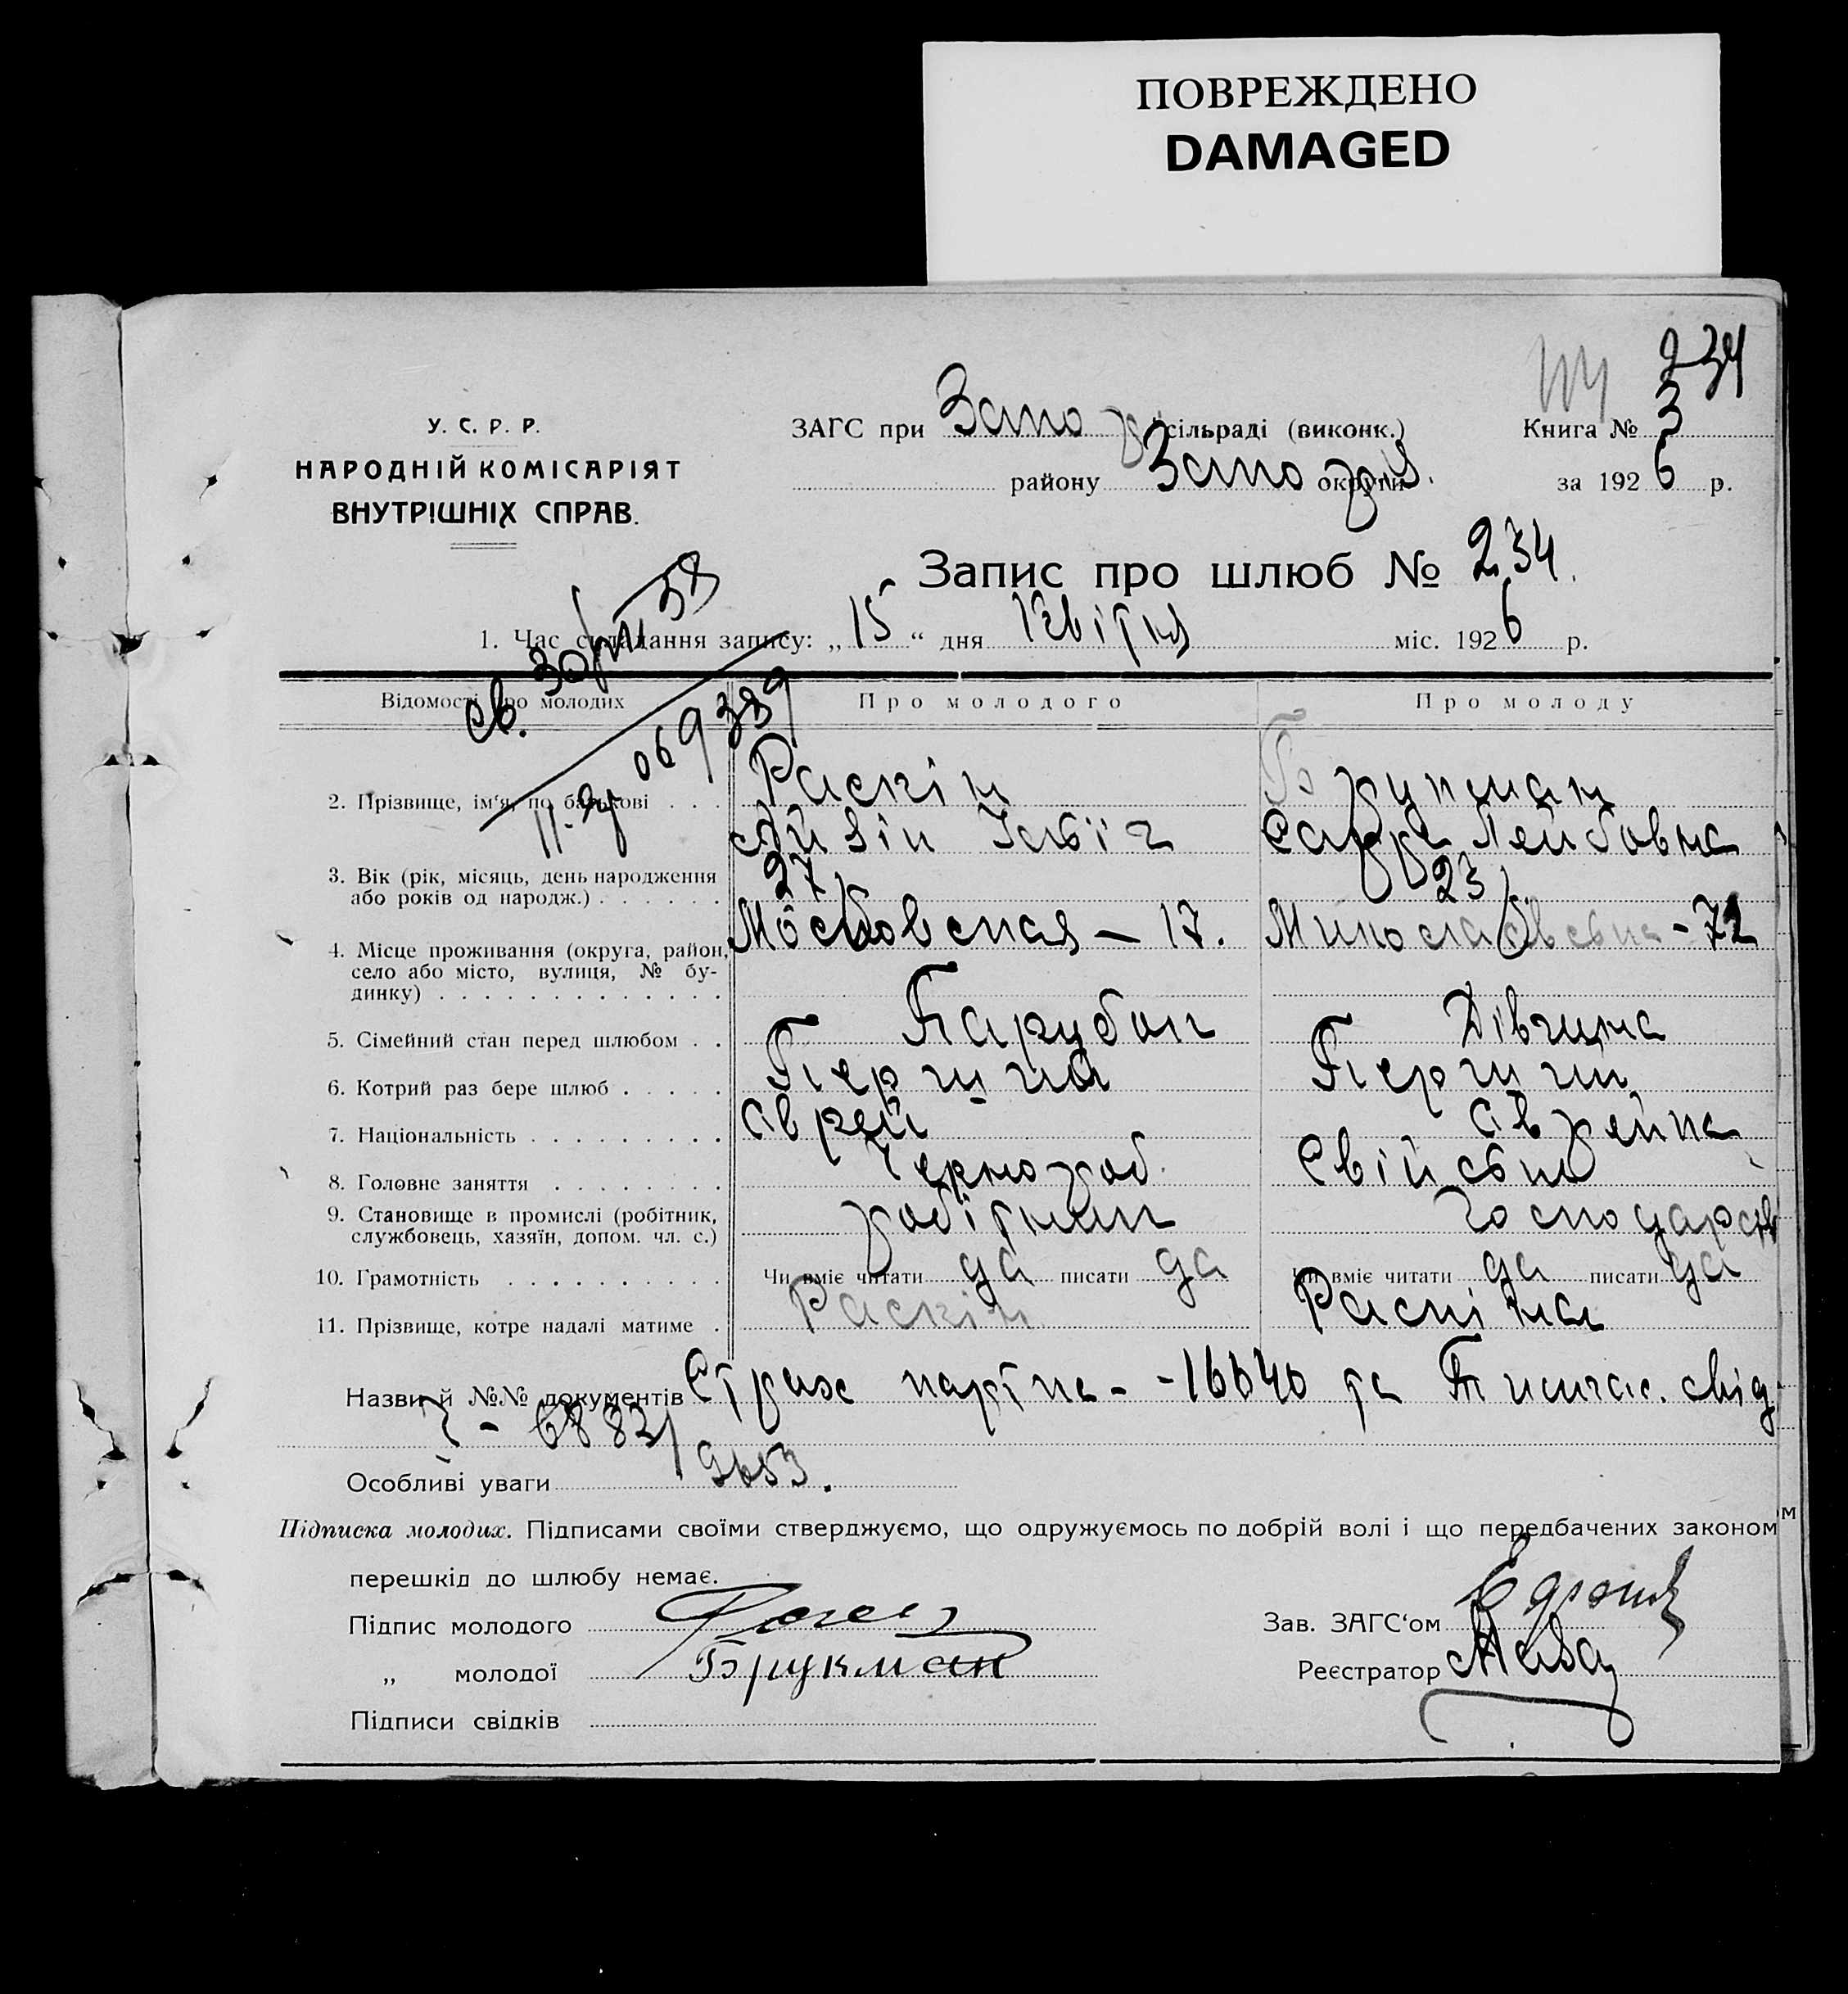 ПОВРЕЖДЕНО
DAMAGED
234
У. С. Р. Р.
НАРОДНІЙ КОМІСАРІЯТ
ВНУТРІШНІХ СПРАВ.
ЗАГС при Запо сільраді (виконк.) Книга № 3
району Запо округи за 1926 р.
Запис про шлюб № 234.
1. Час складання запису: „15“ дня Квітня міс. 1926 р.
св. 30/VII 38
069389
Відомості про молодих Про молодого Про молоду
2. Прізвище, ім‘я, по батькові . . . Раскін Брукман
Сарра Лейбовна
3. Вік (рік, місяць, день народження
або років од народж.) . . . . . . 27 23
4. Місце проживання (округа, район,
село або місто, вулиця, № бу-
динку) . . . . . . . . . . . . .
Московская — 17. - 72
5. Сімейний стан перед шлюбом . . Парубок Дівчина
6. Котрий раз бере шлюб . . . . . Перший Перший
7. Національність . . . . . . . . . Єврей Єврейка
8. Головне заняття . . . . . . . . Чернороб.
9. Становище в промислі (робітник,
службовець, хазяїн, допом. чл. с.) робітник господарств
10. Грамотність . . . . . . . . . . Чи вміє читати да писати да Чи вміє читати да писати да
11. Прізвище, котре надалі матиме . Раскін Раскіна
Назви й №№ документів Страх картка - та Тимчас. свід.
Особливі уваги
Підписка молодих. Підписами своїми стверджуємо, що одружуємось по добрій волі і що передбачених законом
перешкід до шлюбу немає.
Підпис молодого
„ молодої Брукман
Зав. ЗАГС‘ом
Реєстратор
Підписи свідків